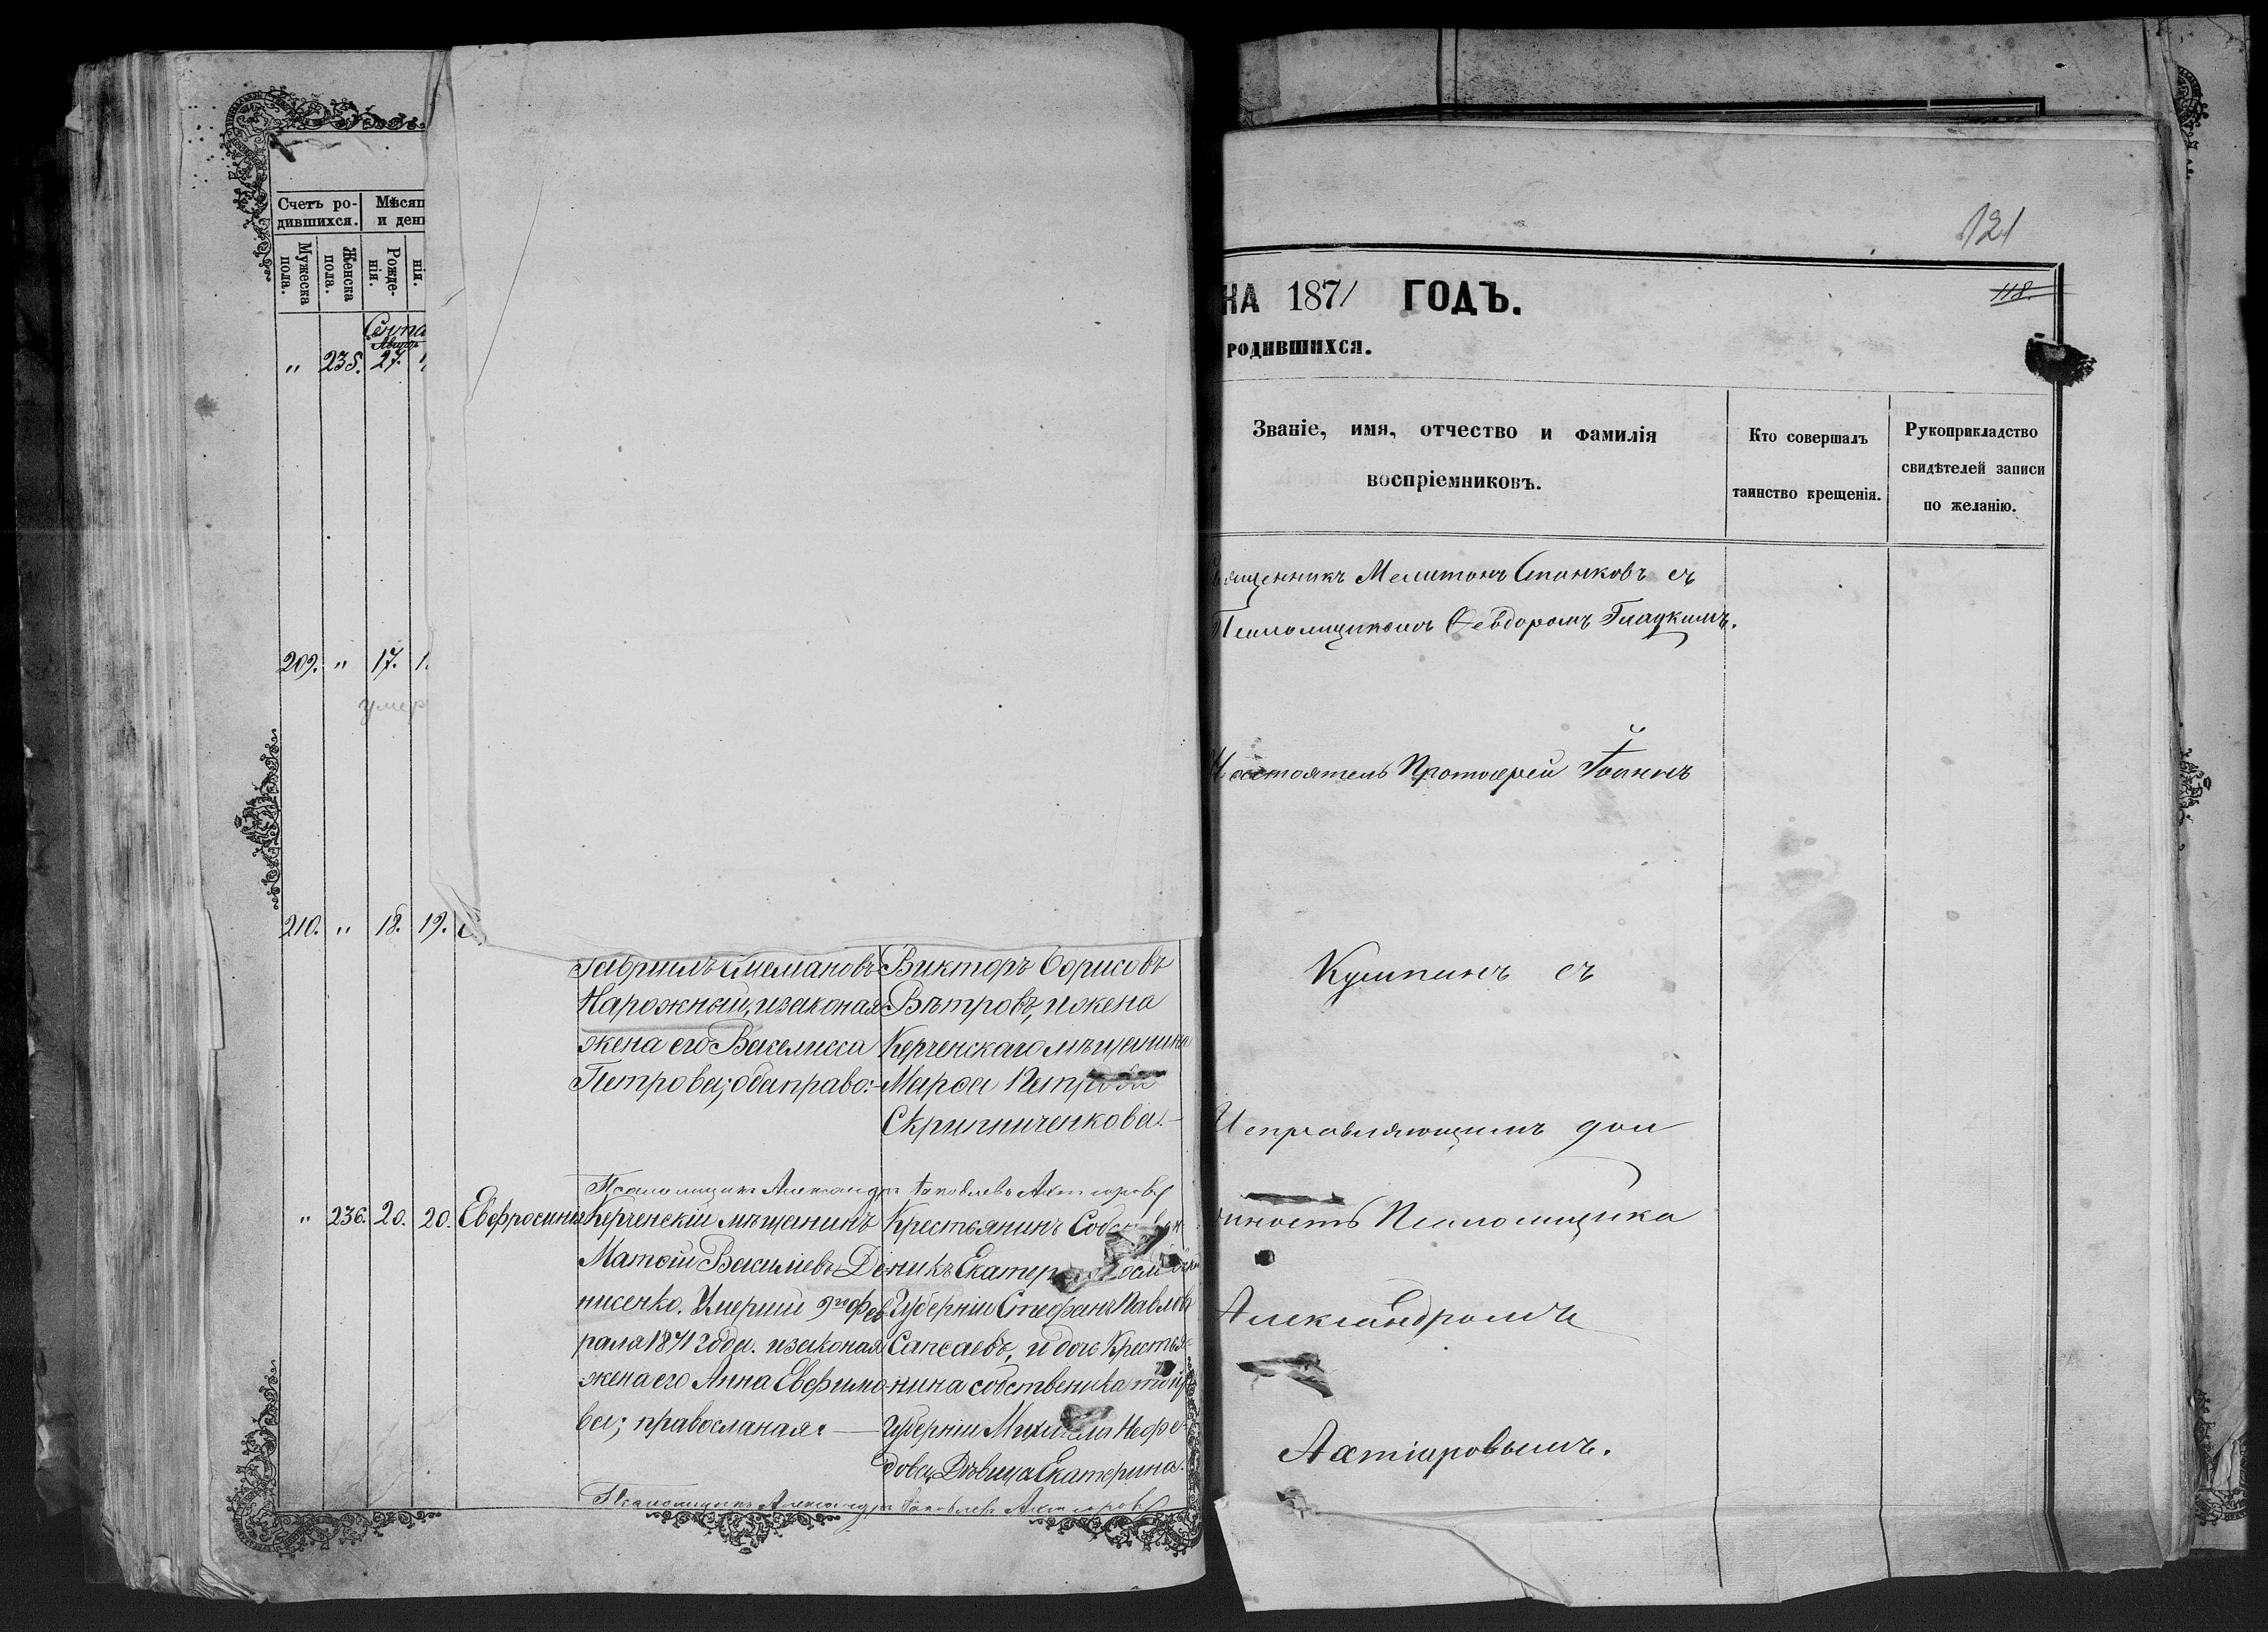 Счетъ ро-
дившихся.
Мѣсяц
и ден
Мужеска
пола.
Женска
пола.
Рожде-
нія.
нія.
Сента
Август
" 235. 27.
209. " 17. 1.
умер
210. " 18. 19.
Гавріилъ
Нарожный, и законая
жена его Васелисса
Петрова; оба право:
Викторъ Борисовъ
Вѣтровъ, и жена
Керченскаго мѣщанина
Марѳа Петрова
Скрипниченкова.
Псаломщикъ Александръ Яковлевъ Ахтіаровъ
" 236. 20. 20. Евфросинія
Керченскій мѣщанинъ
Матѳій Василіевъ Де-
нисенко. Умершій 9го Фев
раля 1871 года. и законая
жена его Анна Евфимо-
ва; православная:
Крестьянинъ
никъ
Губерніи Стефанъ Павловъ
Сапсаевъ, и дочь Крестья-
нина собственика той
Губерніи Михаила Нефе-
дова, Дѣвица Екатерина.
Псаломщикъ Александръ Яковлевъ Ахтіаровъ
121
НА 1871 ГОДЪ.
118.
РОДИВШИХСЯ.
Званіе, имя, отчество и фамилія
воспріемниковъ.
Кто совершалъ
таинство крещенія.
Рукоприкладство
свидѣтелей записи
по желанію.
Священникъ Мелитонъ Станковъ съ
Псаломщикомъ Ѳеодоромъ Гладкимъ.
Настоятель Протоіерей Іоаннъ
Кумпанъ съ
Исправляющимъ дол
жность Псаломщика
Александромъ
Ахтіаровымъ.